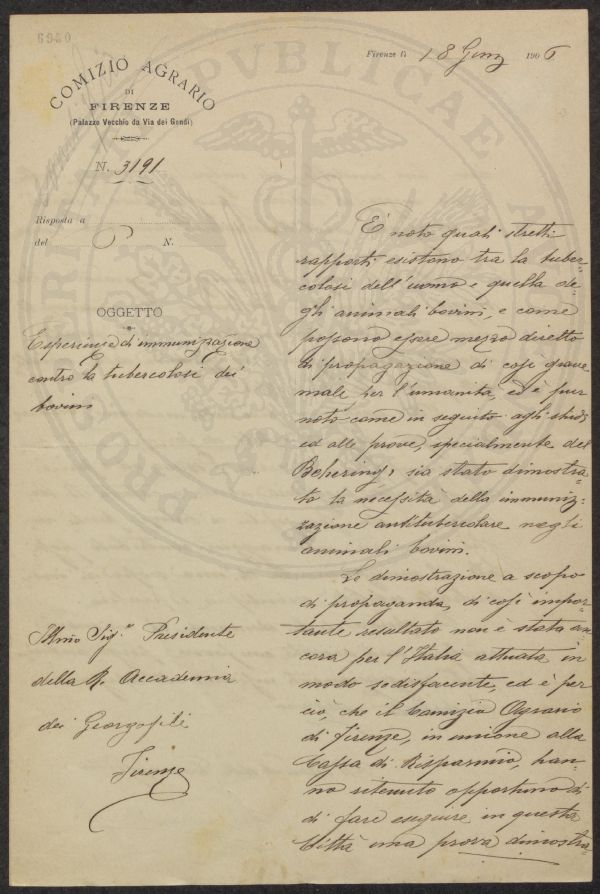 6960
Firenze li 18 Genn 1906
COMIZIO AGRARIO
DI
FIRENZE
(Palazzo Vecchio da Via dei Gondi)
N. 3191
Risposta a
del N.
OGGETTO
Esperienze di immunizzazione
contro la tubercolosi dei
bovini
Illmo Sig.r Presidente
della R. Accademia
dei Georgofili
Firenze
È noto quali stretti
rapporti esistono tra la tuber-
colosi dell'uomo e quella de-
gli animali bovini, e come
possono essere mezzo diretto
di propagazione di così grave
male per l'umanità, ed è pur
noto come in seguito agli studi
ed alle prove, specialmente del
Behering, sia stato dimostra-
to la necessità della immuniz-
zazione antitubercolare negli
animali bovini.
La dimostrazione a scopo
di propaganda, di così impor-
tante resultato non è stata an-
cora per l'Italia attuata in
modo sodisfacente, ed è per
ciò, che il Comizio Agrario
di Firenze, in unione alla
Cassa di Risparmio, han-
no ritenuto opportuno di
di fare eseguire in questa
Città una prova dimostra-